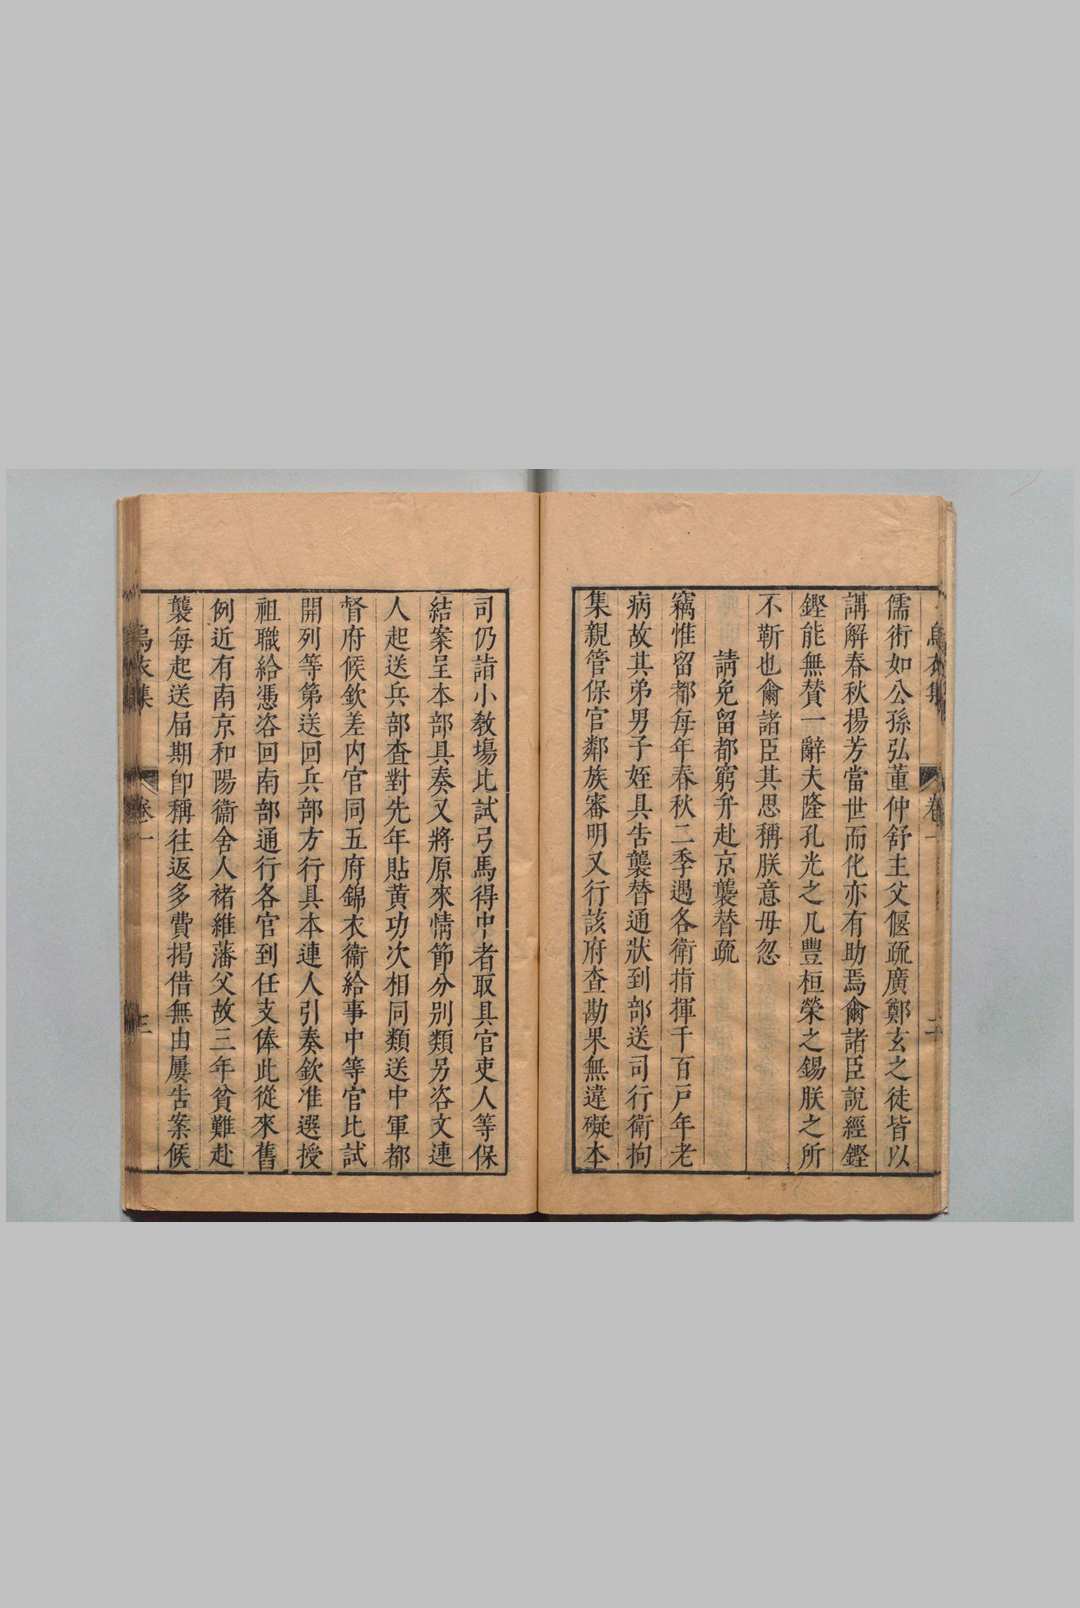 儒術如公孫弘董仲舒主父偃疏廣鄭玄之徒皆以
講解春秋揚芳當世而化亦有助焉爾諸臣說經鏗
鏗能無贊一辭夫隆孔光之几豐桓榮之錫朕之所
不靳也爾諸臣其思稱朕意毋忽
請免留都窮弁赴京襲替疏
竊惟留都每年春秋二季遇各衛指揮千百戶年老
病故其弟男子姪具告襲替通狀到部送司行衛拘
集親管保官鄰族審明又行該府查勘果無違礙本
司仍詣小教場比試弓馬得中者取具官吏人等保
結案呈本部具奏又將原來情節分別類另咨文連
人起送兵部查對先年貼黃功次相同類送中軍都
督府候欽差內官同五府錦衣衛給事中等官比試
開列等第送回兵部方行具本連人引奏欽准選授
祖職給憑咨回南部通行各官到任支俸此從來舊
例近有南京和陽衛舍人褚維藩父故三年貧難赴
襲每起送屆期卽稱往返多費揭借無由屢告案候
烏衣集
卷一
三